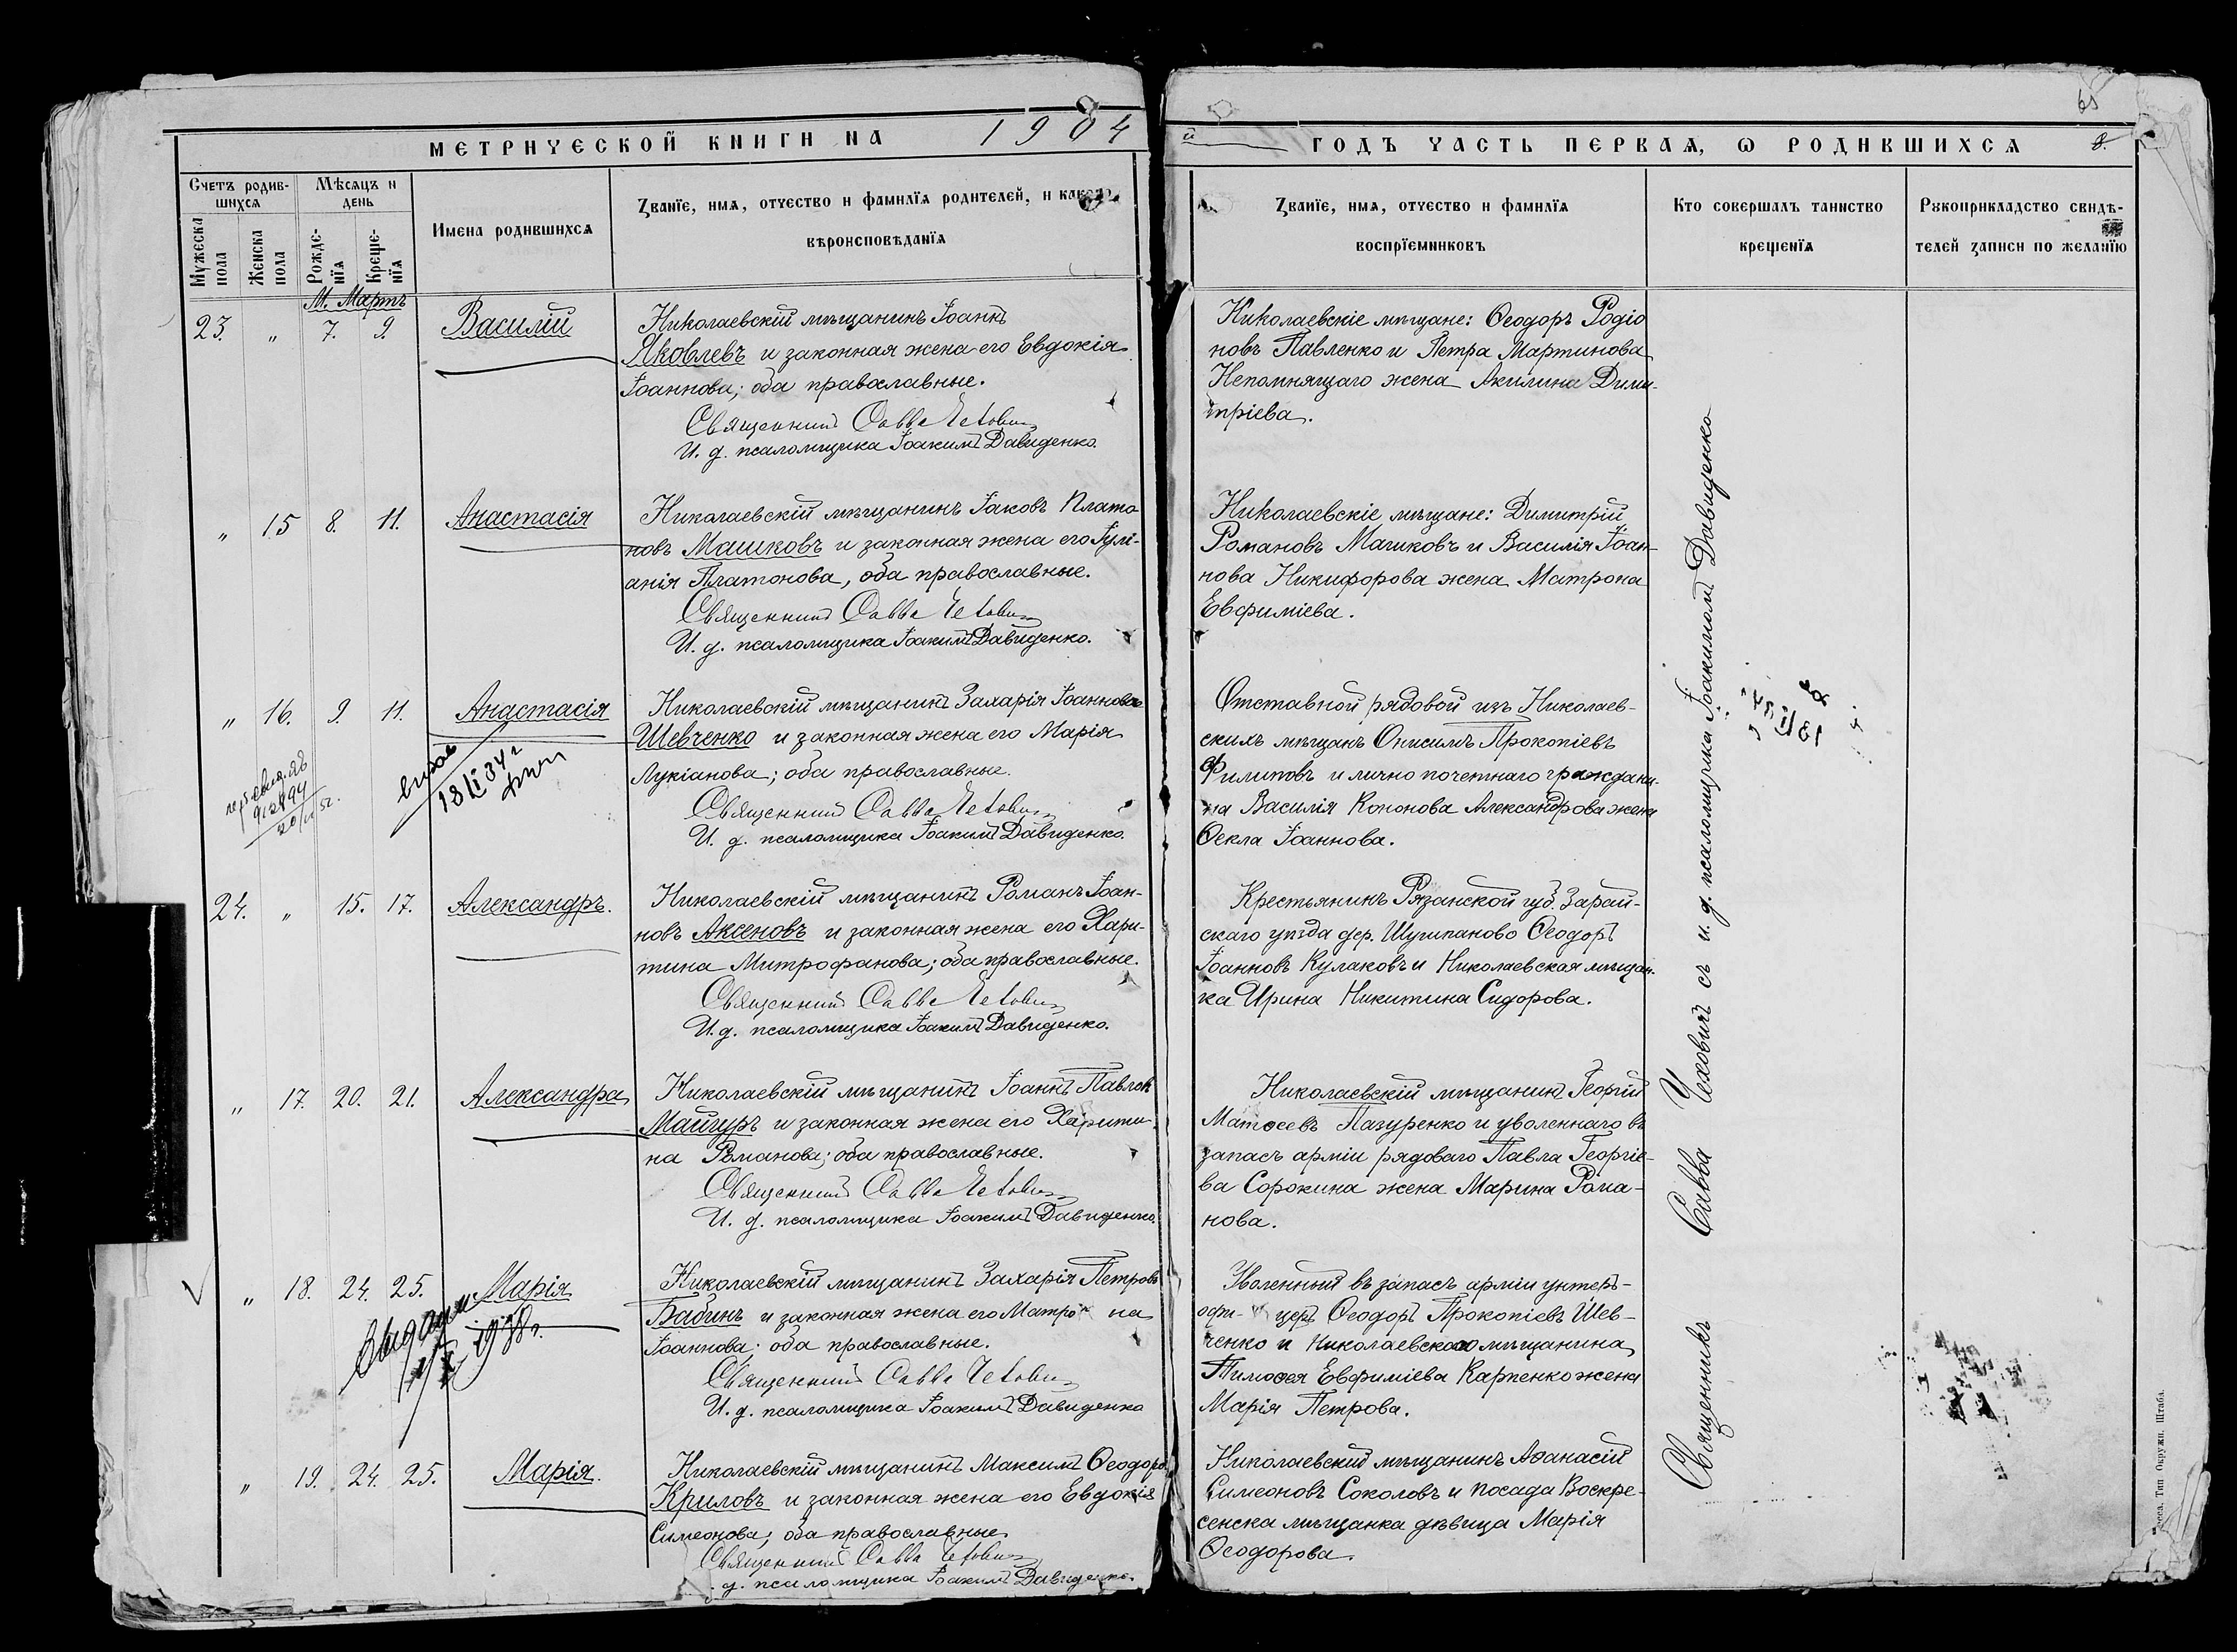 65
МЕТРИЧЕСКОЙ КНИГИ НА 1904
ГОДЪ ЧАСТЬ ПЕРВАѦ, Ѡ РОДИВШИХСѦ
8.
Счетъ родив-
шихсѧ
Мѣсѧцъ и
день
Мужеска
пола
Женска
пола
Рожде-
нїѧ
Креще-
нїѧ
Имена родившихсѧ
Званїе, имѧ, отчество и фамилїѧ родителей, и какого
вѣроисповѣданїѧ
Званїе, имѧ, отчество и фамилїѧ
воспрїемниковъ
Кто совершалъ таинство
крещенїѧ
Рукоприкладство свидѣ-
телей записи по желанїю
М. Мартъ
23. „ 7. 9. Василій
Николаевскій мѣщанинъ Іоаннъ
Яковлевъ и законная жена его Евдокія
Іоаннова; оба православные.
Священникъ Савва Чехович
И. д. псаломщика Іоакимъ Давиденко.
Николаевскіе мѣщане: Ѳеодоръ Родіо
новъ Павленко и Петра Мартинова
Непомнящаго жена Акилина Дими-
тріева.
„ 15 8. 11. Анастасія
Николаевскій мѣщанинъ Іаковъ Плато
новъ Машковъ и законная жена его Іулі-
анія Платонова, оба православные.
Священникъ Савва Чехович
И. д. псаломщика Іоакимъ Давиденко.
Николаевскіе мѣщане: Димитрій
Романовъ Машковъ и Василія Іоан-
нова Никифорова жена Матрона
Евфиміева.
„ 16. 9. 11. Анастасія
18/XI 34 г
20/II 52.
Николаевскій мѣщанинъ Захарія Іоаннова
Шевченко и законная жена его Марія
Лукіанова; оба православные.
Священникъ Савва Чехович
И. д. псаломщика Іоакимъ Давиденко.
Отставной рядовой изъ Николаев-
скихъ мѣщанъ Онисимъ Прокопіевъ
Филиповъ и лично почетнаго граждани-
на Василія Кононова Александрова жена
Ѳекла Іоаннова.
24. „ 15. 17. Александръ.
Николаевскій мѣщанинъ Романъ Іоан-
новъ Аксеновъ и законная жена его Хари-
тина Митрофанова; оба православные.
Священникъ Савва Чехович
И. д. псаломщика Іоакимъ Давиденко.
Крестьянинъ Рязанской губ. Зарай-
скаго уѣзда дер. Шушпаново Ѳеодоръ
Іоанновъ Кулаковъ и Николаевская мѣщан-
ка Ирина Никитина Сидорова.
„ 17. 20. 21. Александра
Николаевскій мѣщанинъ Іоаннъ Павлов
Майгуръ и законная жена его Харити-
на Романова; оба православные.
Священникъ Савва Чехович
И. д. псаломщика Іоакимъ Давиденко.
Николаевскій мѣщанинъ Георгій
Матѳеевъ Лазуренко и уволеннаго въ
запасъ арміи рядоваго Павла Георгіе-
ва Сорокина жена Марина Рома-
нова.
„ 18. 24. 25. Марія
Выдали
1938 г.
Николаевскій мѣщанинъ Захарія Петровъ
Бабинъ и законная жена его Матро на
Іоаннова; оба православные.
Священникъ Савва Чехович
И. д. псаломщика Іоакимъ Давиденко
Уволенный въ запасъ арміи унтеръ-
офи- церъ Ѳеодоръ Прокопіевъ Шев-
ченко и Николаевскаго мѣщанина
Тимоѳея Евфиміева Карпенко жена
Марія Петрова.
„ 19. 24. 25. Марія.
Николаевскій мѣщанинъ Максимъ Ѳеодоро
Криловъ и законная жена его Евдокія
Симеонова; оба православные.
Священникъ Савва Чехович
д. псаломщика Іоакимъ Давиденко.
Николаевскій мѣщанинъ Аѳанасій
Симеоновъ Соколовъ и посада Воскре-
сенска мѣщанка дѣвица Марія
Ѳеодорова.
Священникъ Савва Чеховичъ съ и. д. псаломщика Іоакимомъ Давиденко
Тип Окружн. Штаба.